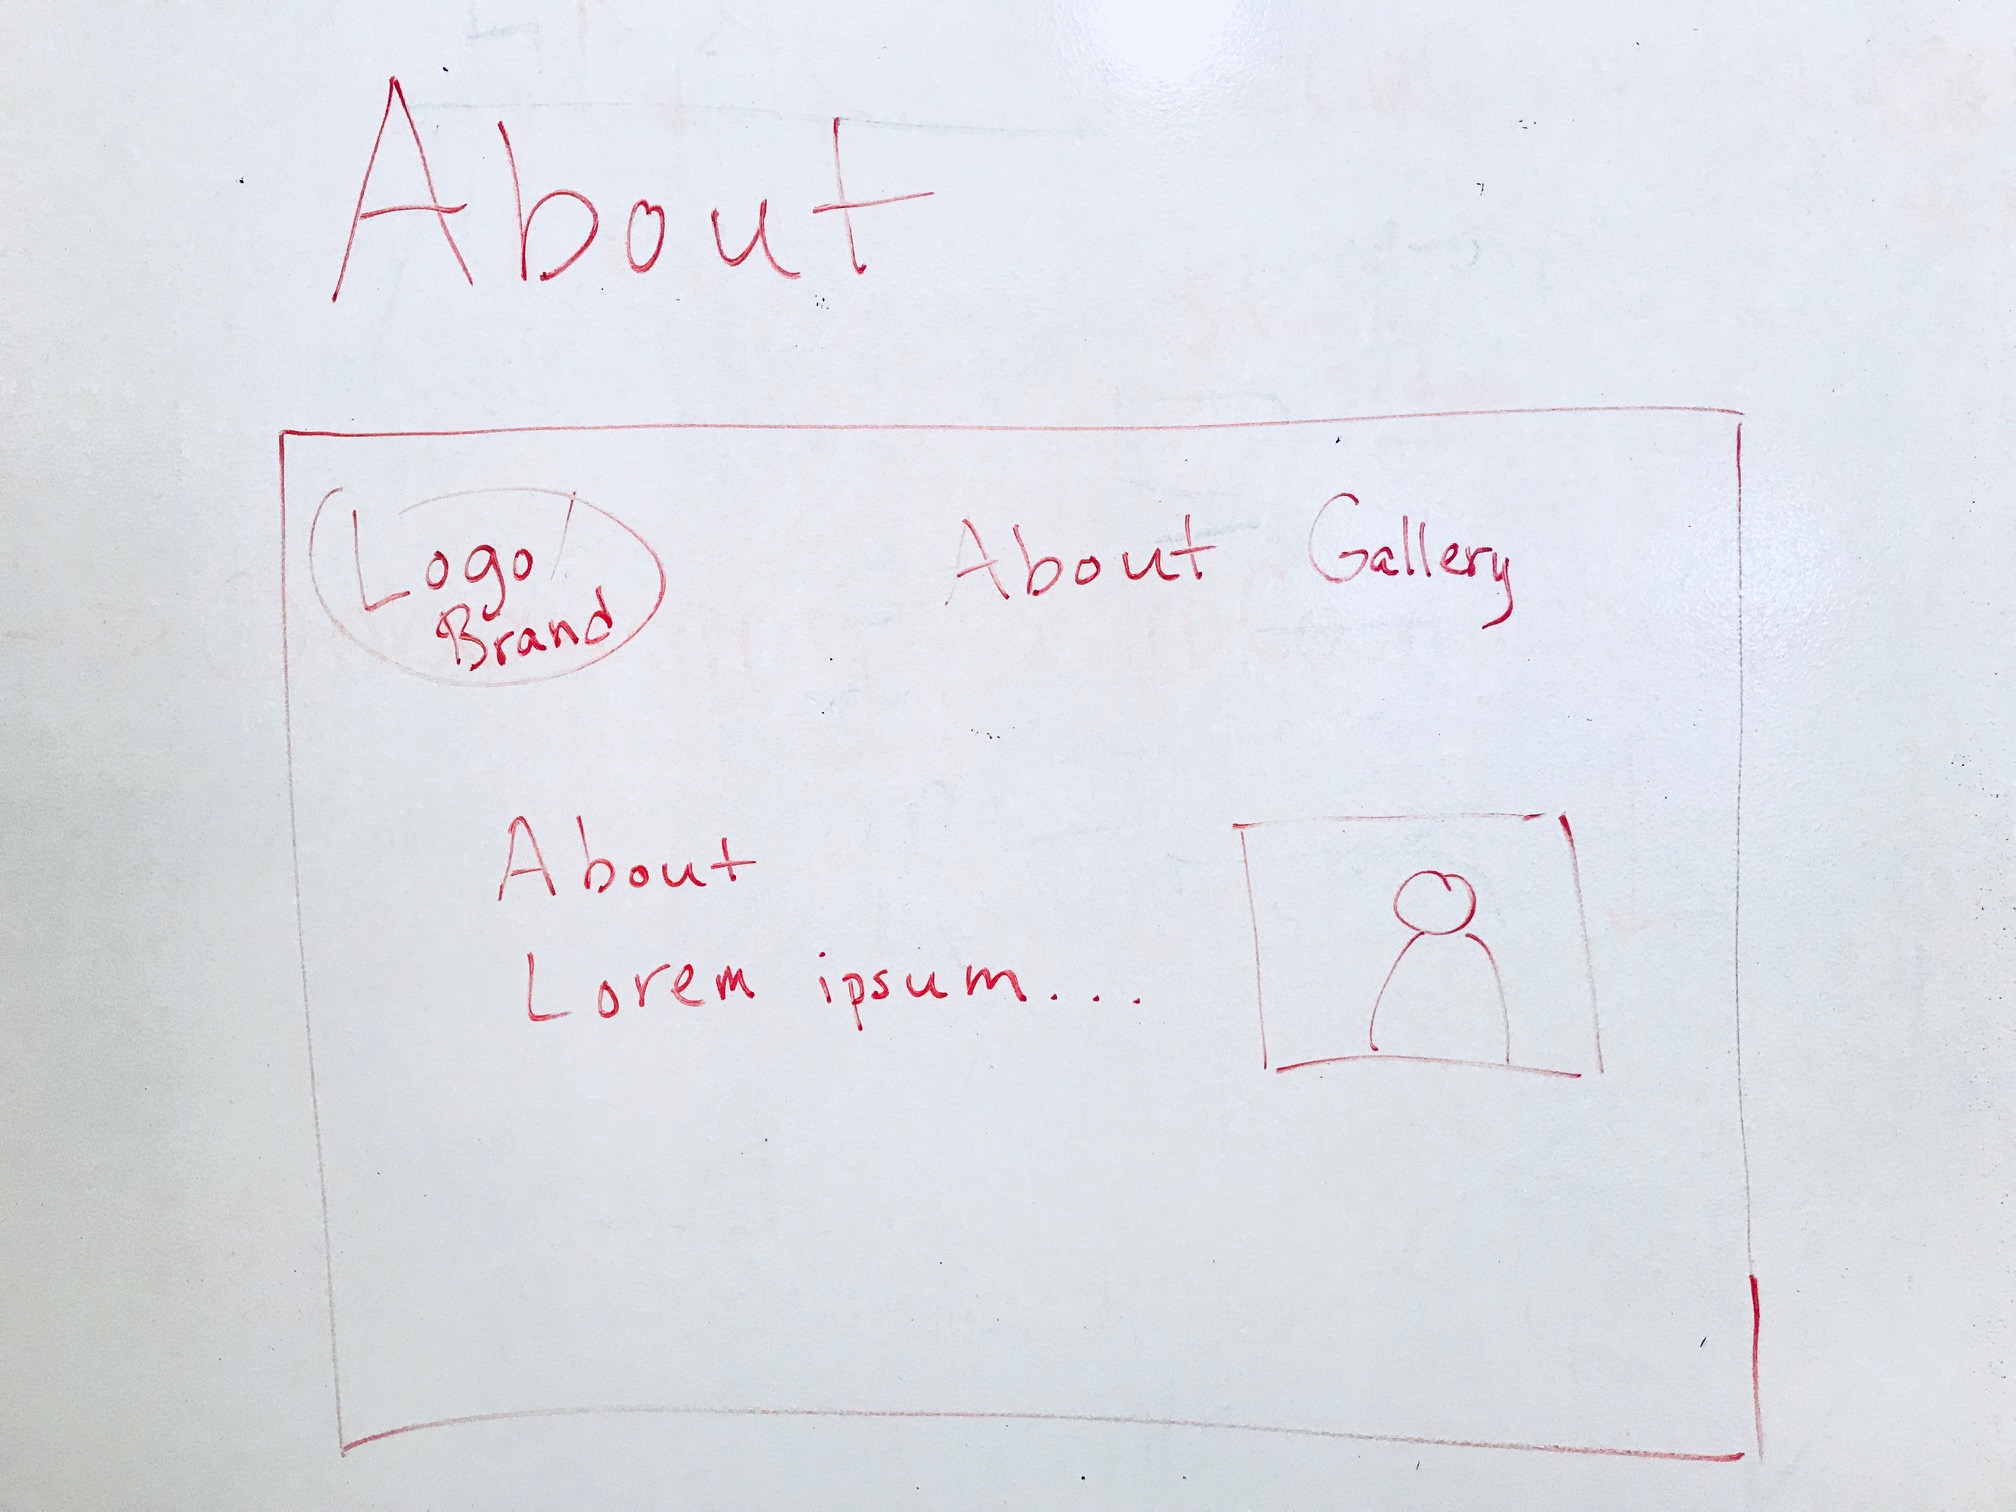 About
Logo/
Brand
About Gallery
About
Lorem ipsum....